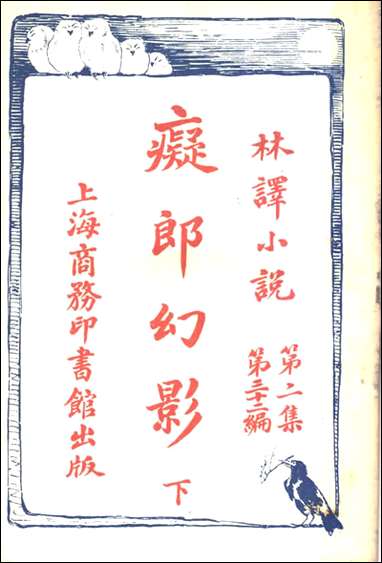 林譯小説
第二集
第三十二編
癡郎幻影
下
上海商務印書館出版